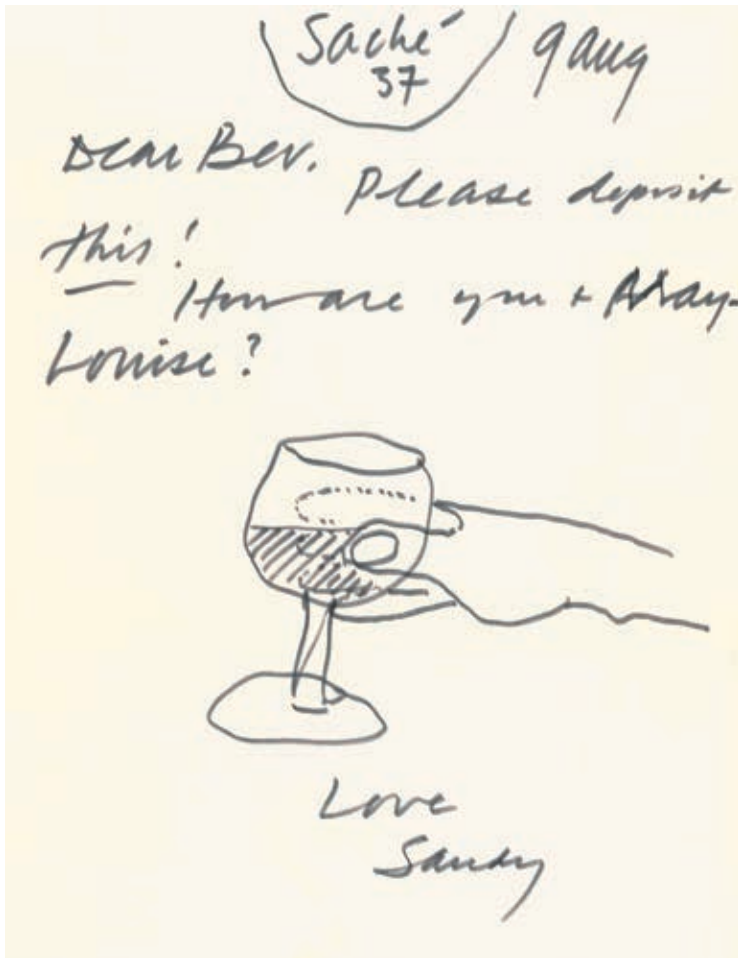 Saché
37
9 Aug
Dear Bev.
Please deposit
this!
How are you + May-
Louise?
Love
Sandy